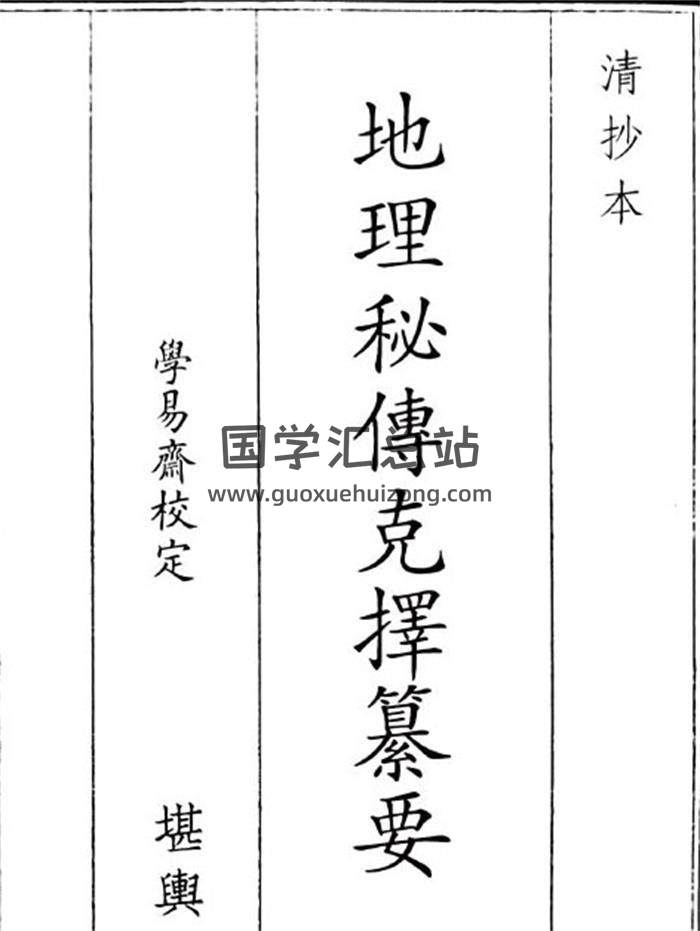 清抄本
地理秘傳克擇纂要
學易齋校定
堪輿
国学汇总站
www.guoxuehuizong.com